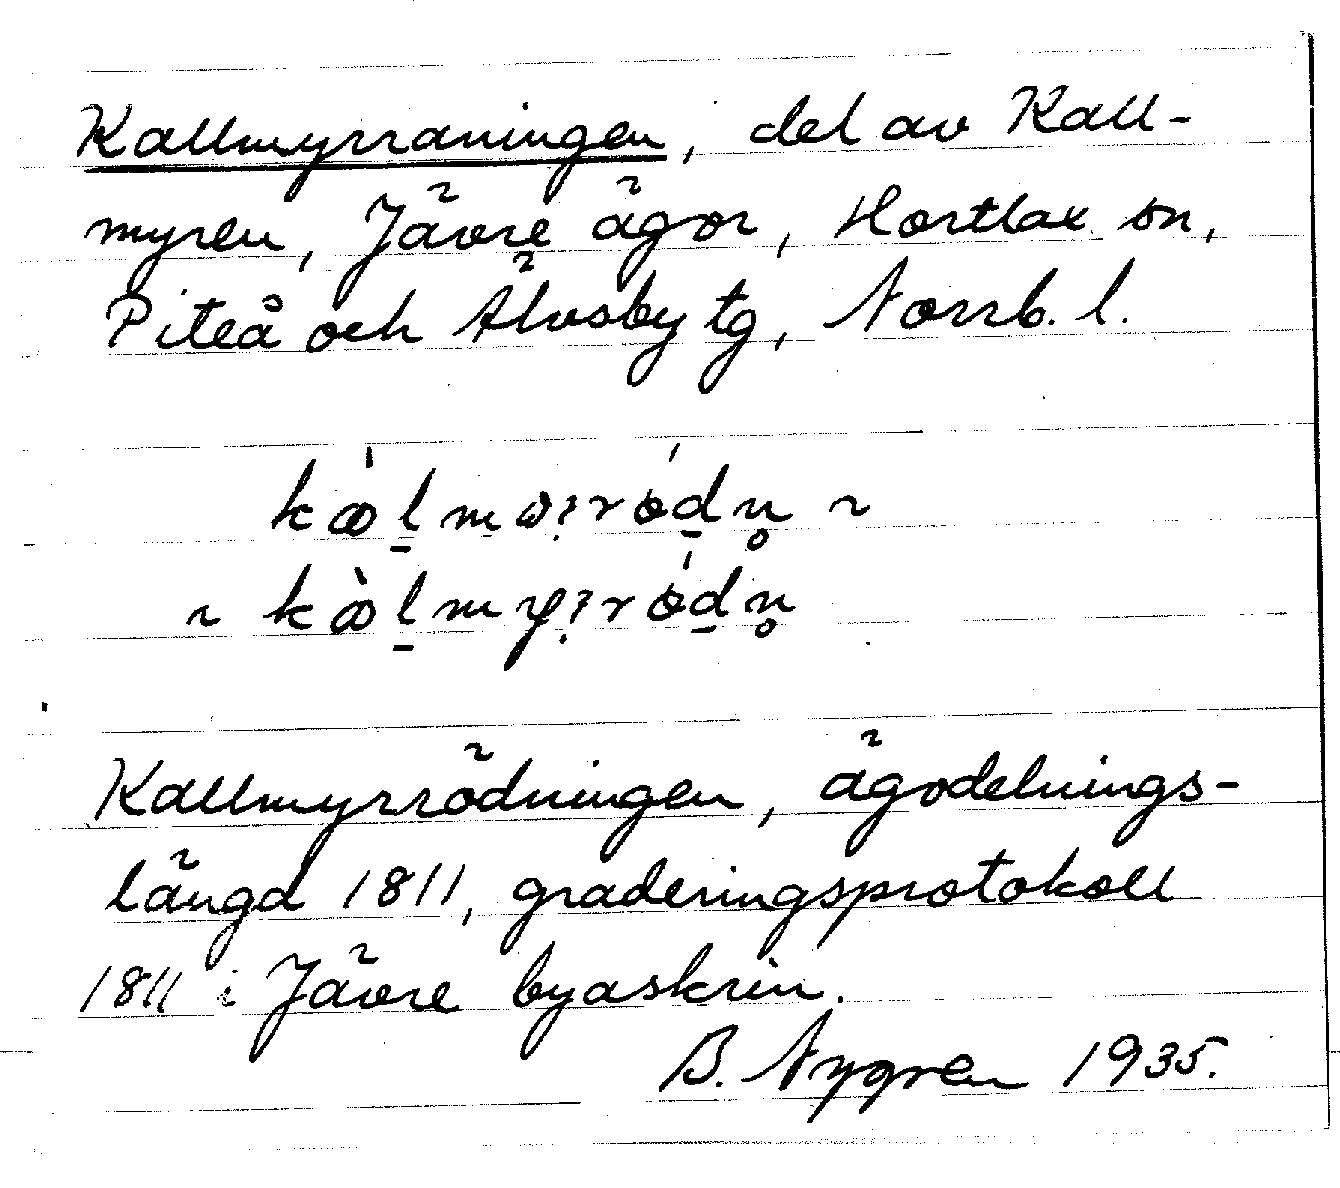 Kallmyrraningen, del av Kall-
myren, Jävre ägor, Hortlax sn,
Piteå och Älvsby tg, Norrb. l.
Kallmyrrödningen, ägodelnings-
längd 1811, graderingsprotokoll
1811 i Jävre byaskrin.
B. Nygren 1935.